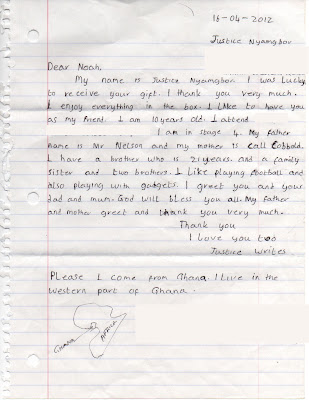 16-04-2012
Justice Nyamgbon
Dear Noah,
My name is Justice Nyamgbon. I was Lucky
to receive your gift. I thank you very much.
I enjoy everything in the box. I like to have you
as my friend. I am 10 years old. I attend
I am in stage 4. My father
name is Mr Nelson and my mother is call Cobbold.
I have a brother who is 21 years. and a family
sister and two brothers. I Like playing football and
also playing with gadgets. I greet you and your
dad and mum. God will bless you all. My father
and mother greet and thank you very much.
Thank you
I love you too
Justice writes
Please I come from Ghana. I live in the
western part of Ghana.
GHANA
AFRICA